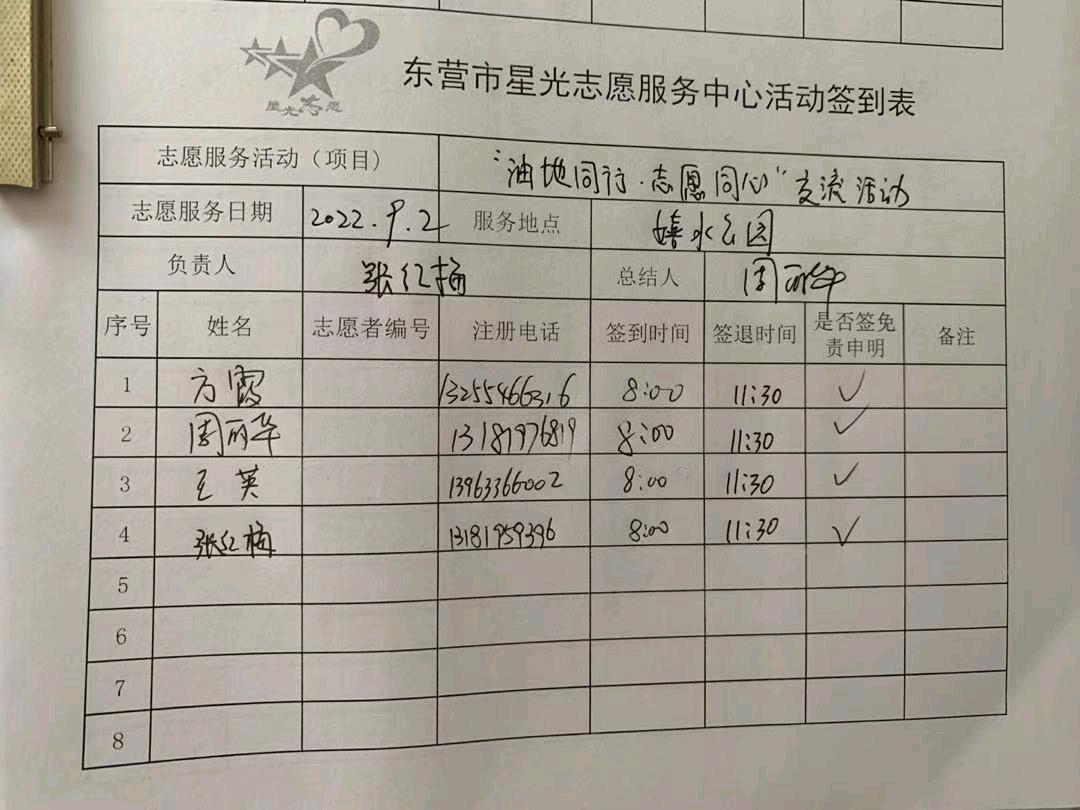 星光志愿
东营市星光志愿服务中心活动签到表
志愿服务活动（项目） “油地同行·志愿同心”交流活动
志愿服务日期 2022.9.2 服务地点 嬉水公园
负责人 张红梅 总结人 周丽华
序号 姓名 志愿者编号 注册电话 签到时间 签退时间 是否签免责申明 备注
1 方霞 13255466316 8:00 11:30 ✓
2 周丽华 13181976819 8:00 11:30 ✓
3 王英 13963366002 8:00 11:30 ✓
4 张红梅 13181959396 8:00 11:30 ✓
5
6
7
8